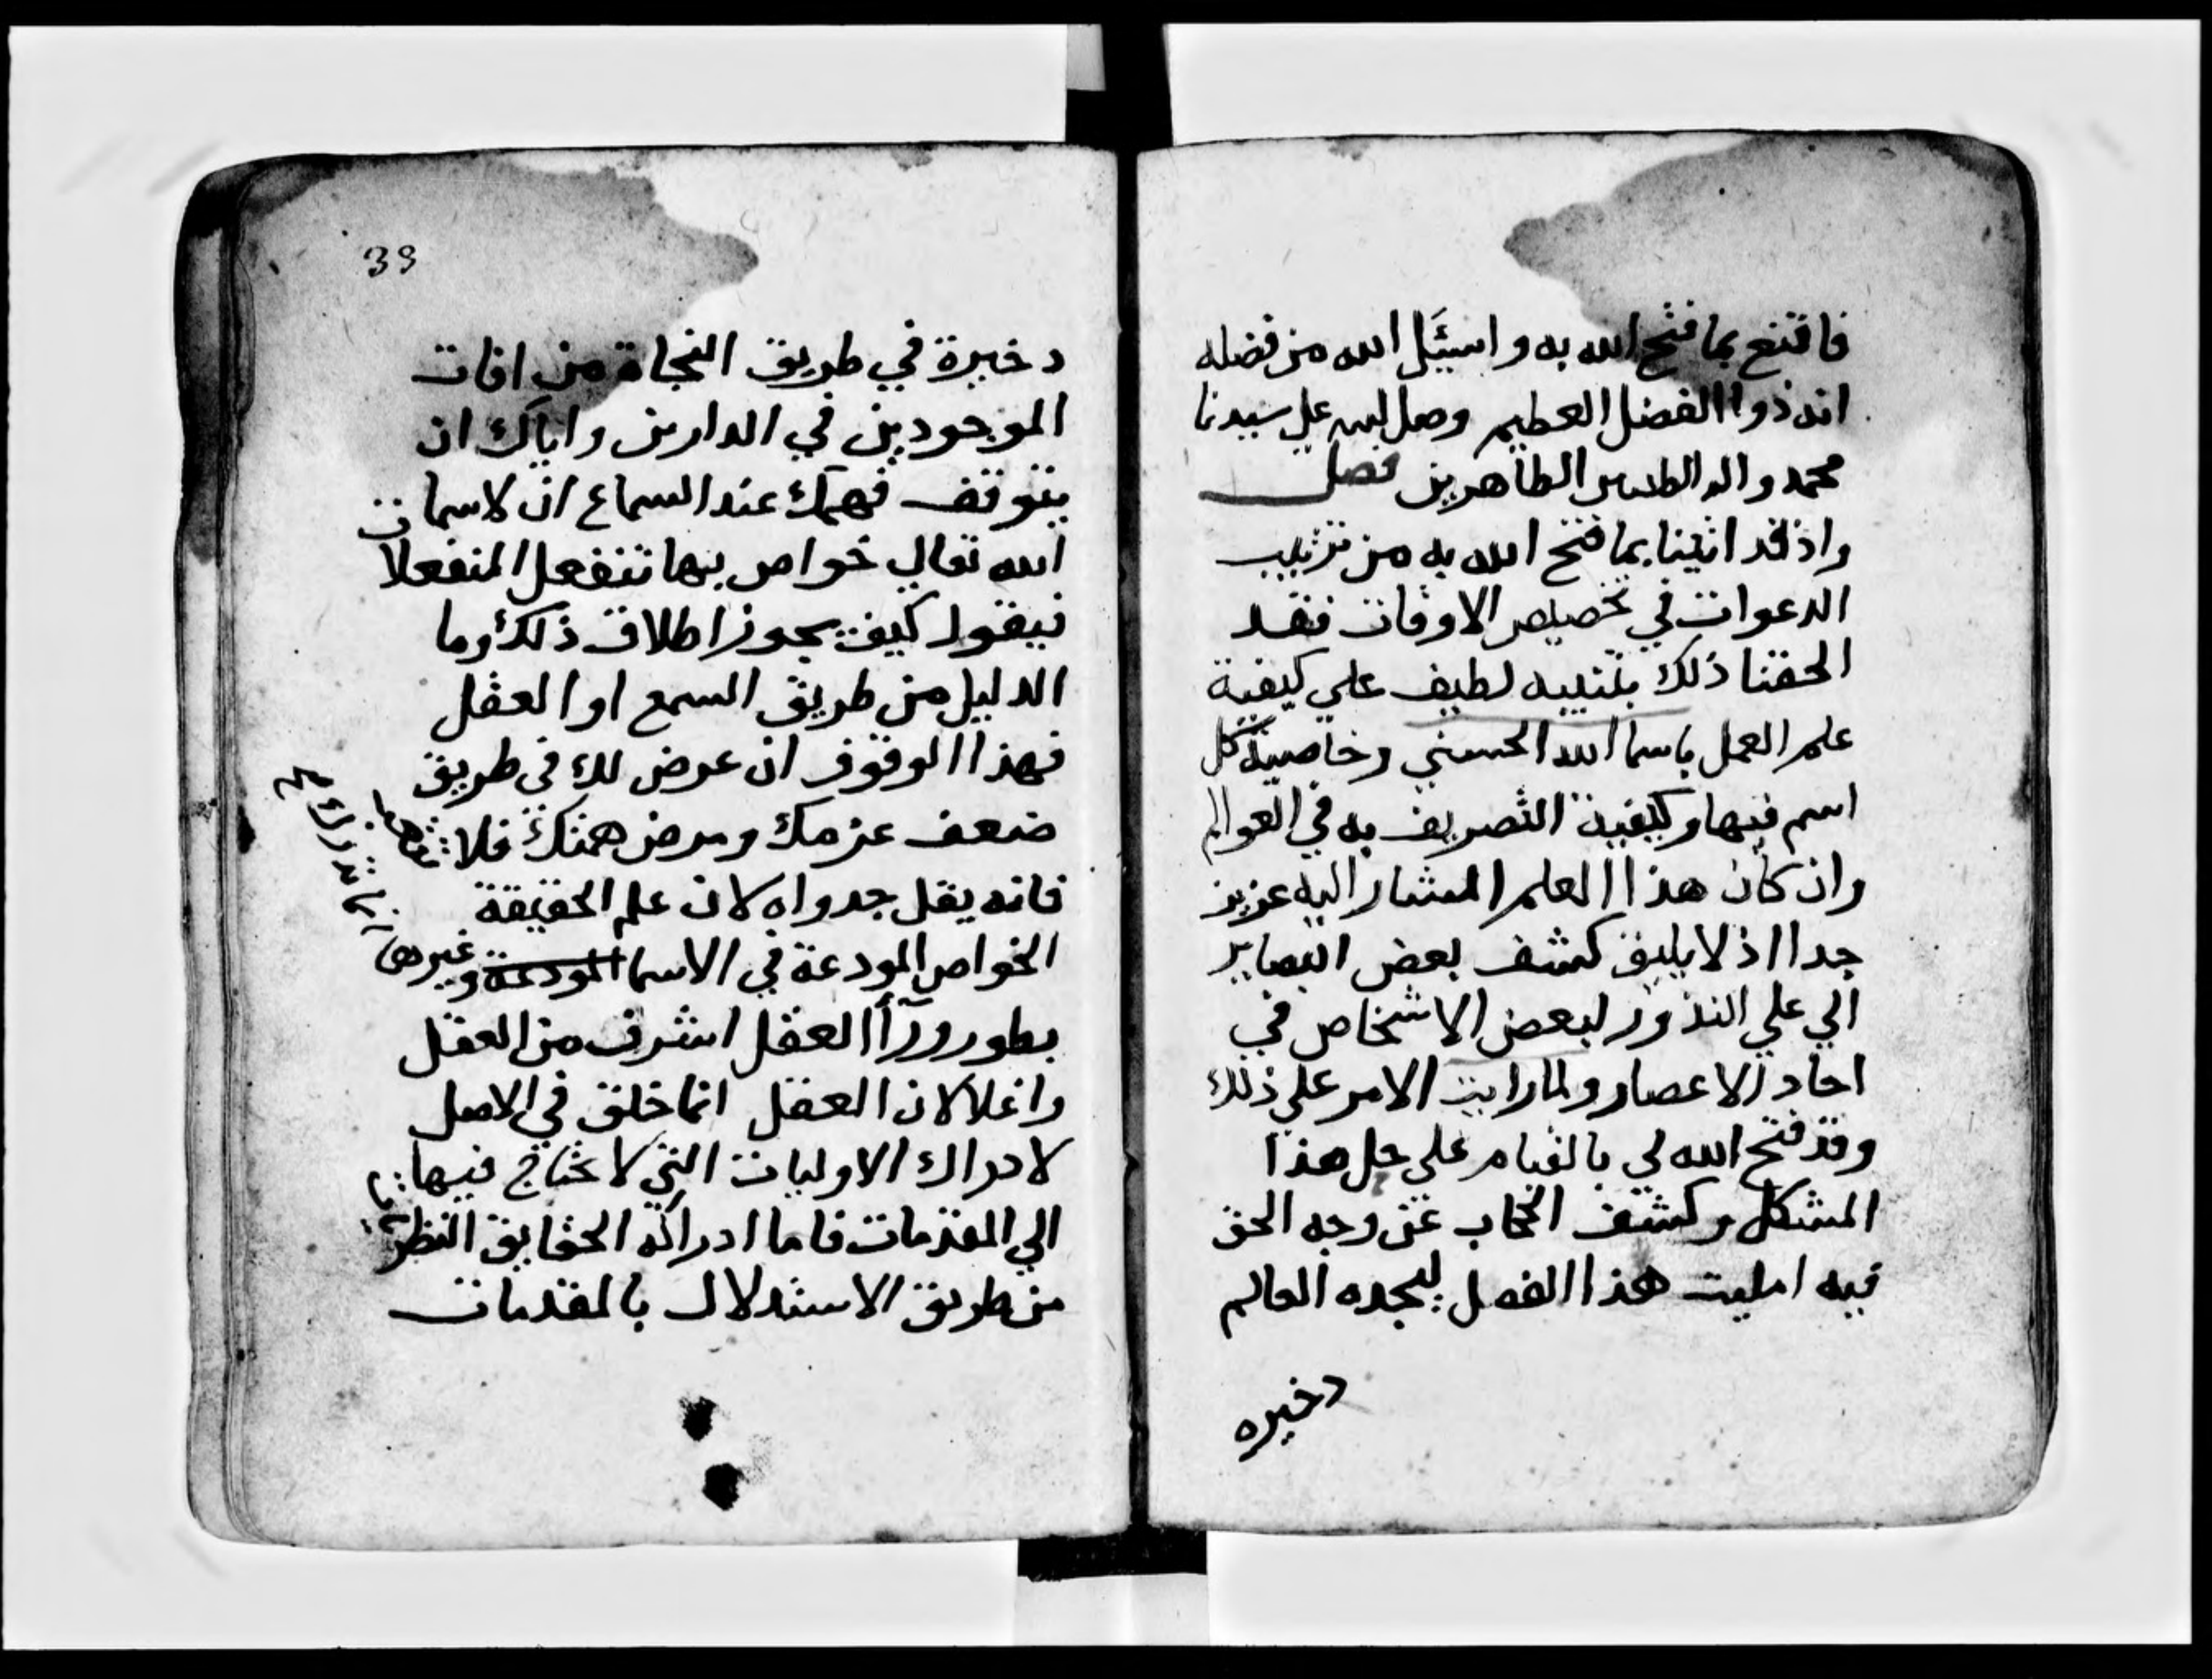 فاقنع بما فتح الله به واسئَل الله من فضله
انه ذوا الفضل العظيم وصل اللهم علي سيدنا
محمد واله الطيبين الطاهرين فصل
واذ قد اتينا بما فتح الله به من ترتيب
الدعوات في تخصيص الاوقات فقد
الحقنا ذلك بتنبيه لطيف علي كيفية
علم العمل باسما الله الحسني وخاصية كل
اسم فيها وكيفية التصريف به في العوالم
وان كان هذا العلم المشار اليه عزيز
جدا اذ لا يليق كشف بعض البصاير
الي علي الندور لبعض الاشخاص في
احاد الاعصار ولما رايت الامر علي ذلك
وقد فتح الله لي بالقيام علي حل هذا
المشكل وكشف الحجاب عن وجه الحق
فيه امليت هذا الفصل ليجده العالم
دخيره
39
دخيرة في طريق النجاة من افات
الموجودين في الدارين واياك ان
يتوقف فهمك عند السماع ان لاسما
الله تعالي خواص بها تنفعل المنفعلات
فيقول كيف يجوز اطلاق ذلك وما
الدليل من طريق السمع او العقل
فهذا الوقوف ان عرض لك في طريق
ضعف عزمك ومرض همتك فلا
فانه يقل جدواه لان علم الحقيقة
الخواص المودعة في الاسما المودعة وغيرها
بطور ورآأ العقل اشرف من العقل
واغلا لان العقل انما خلق في الاصل
لادراك الاوليات التي لا يحتاج فيها
الي المقدمات فاما ادراكه الحقايق النظر
من طريق الاستدلال بالمقدمات